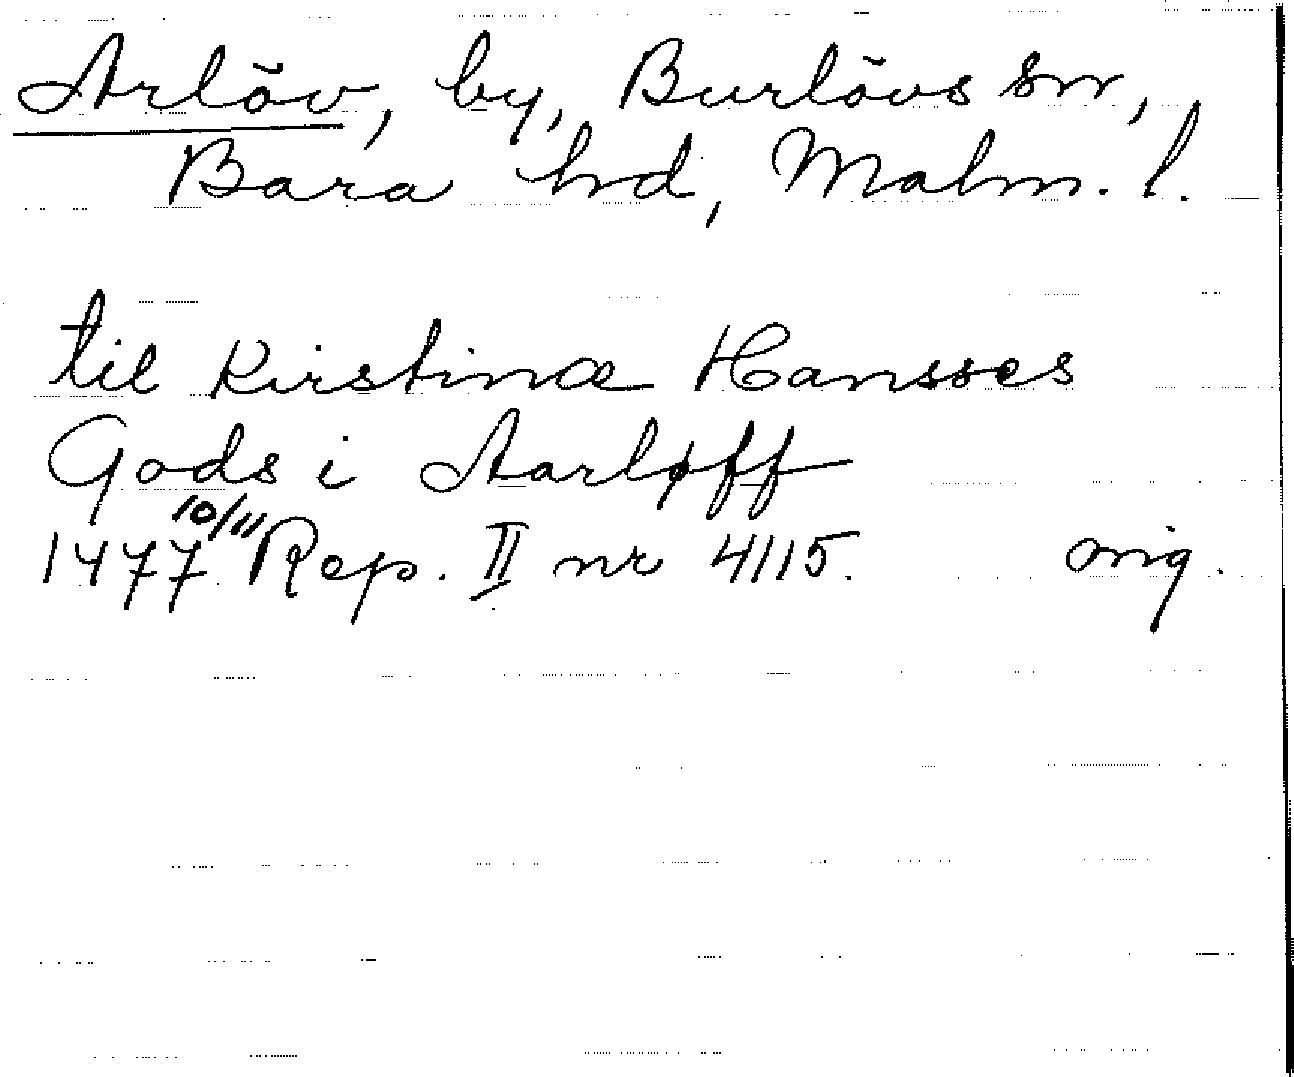 Arlöv, by, Burlövs sn,
Bara hd, Malm. l.
til Kirstinæ Hansses
Gods i Aarløff
1477 10/11 Rep. II nr 4115. orig.